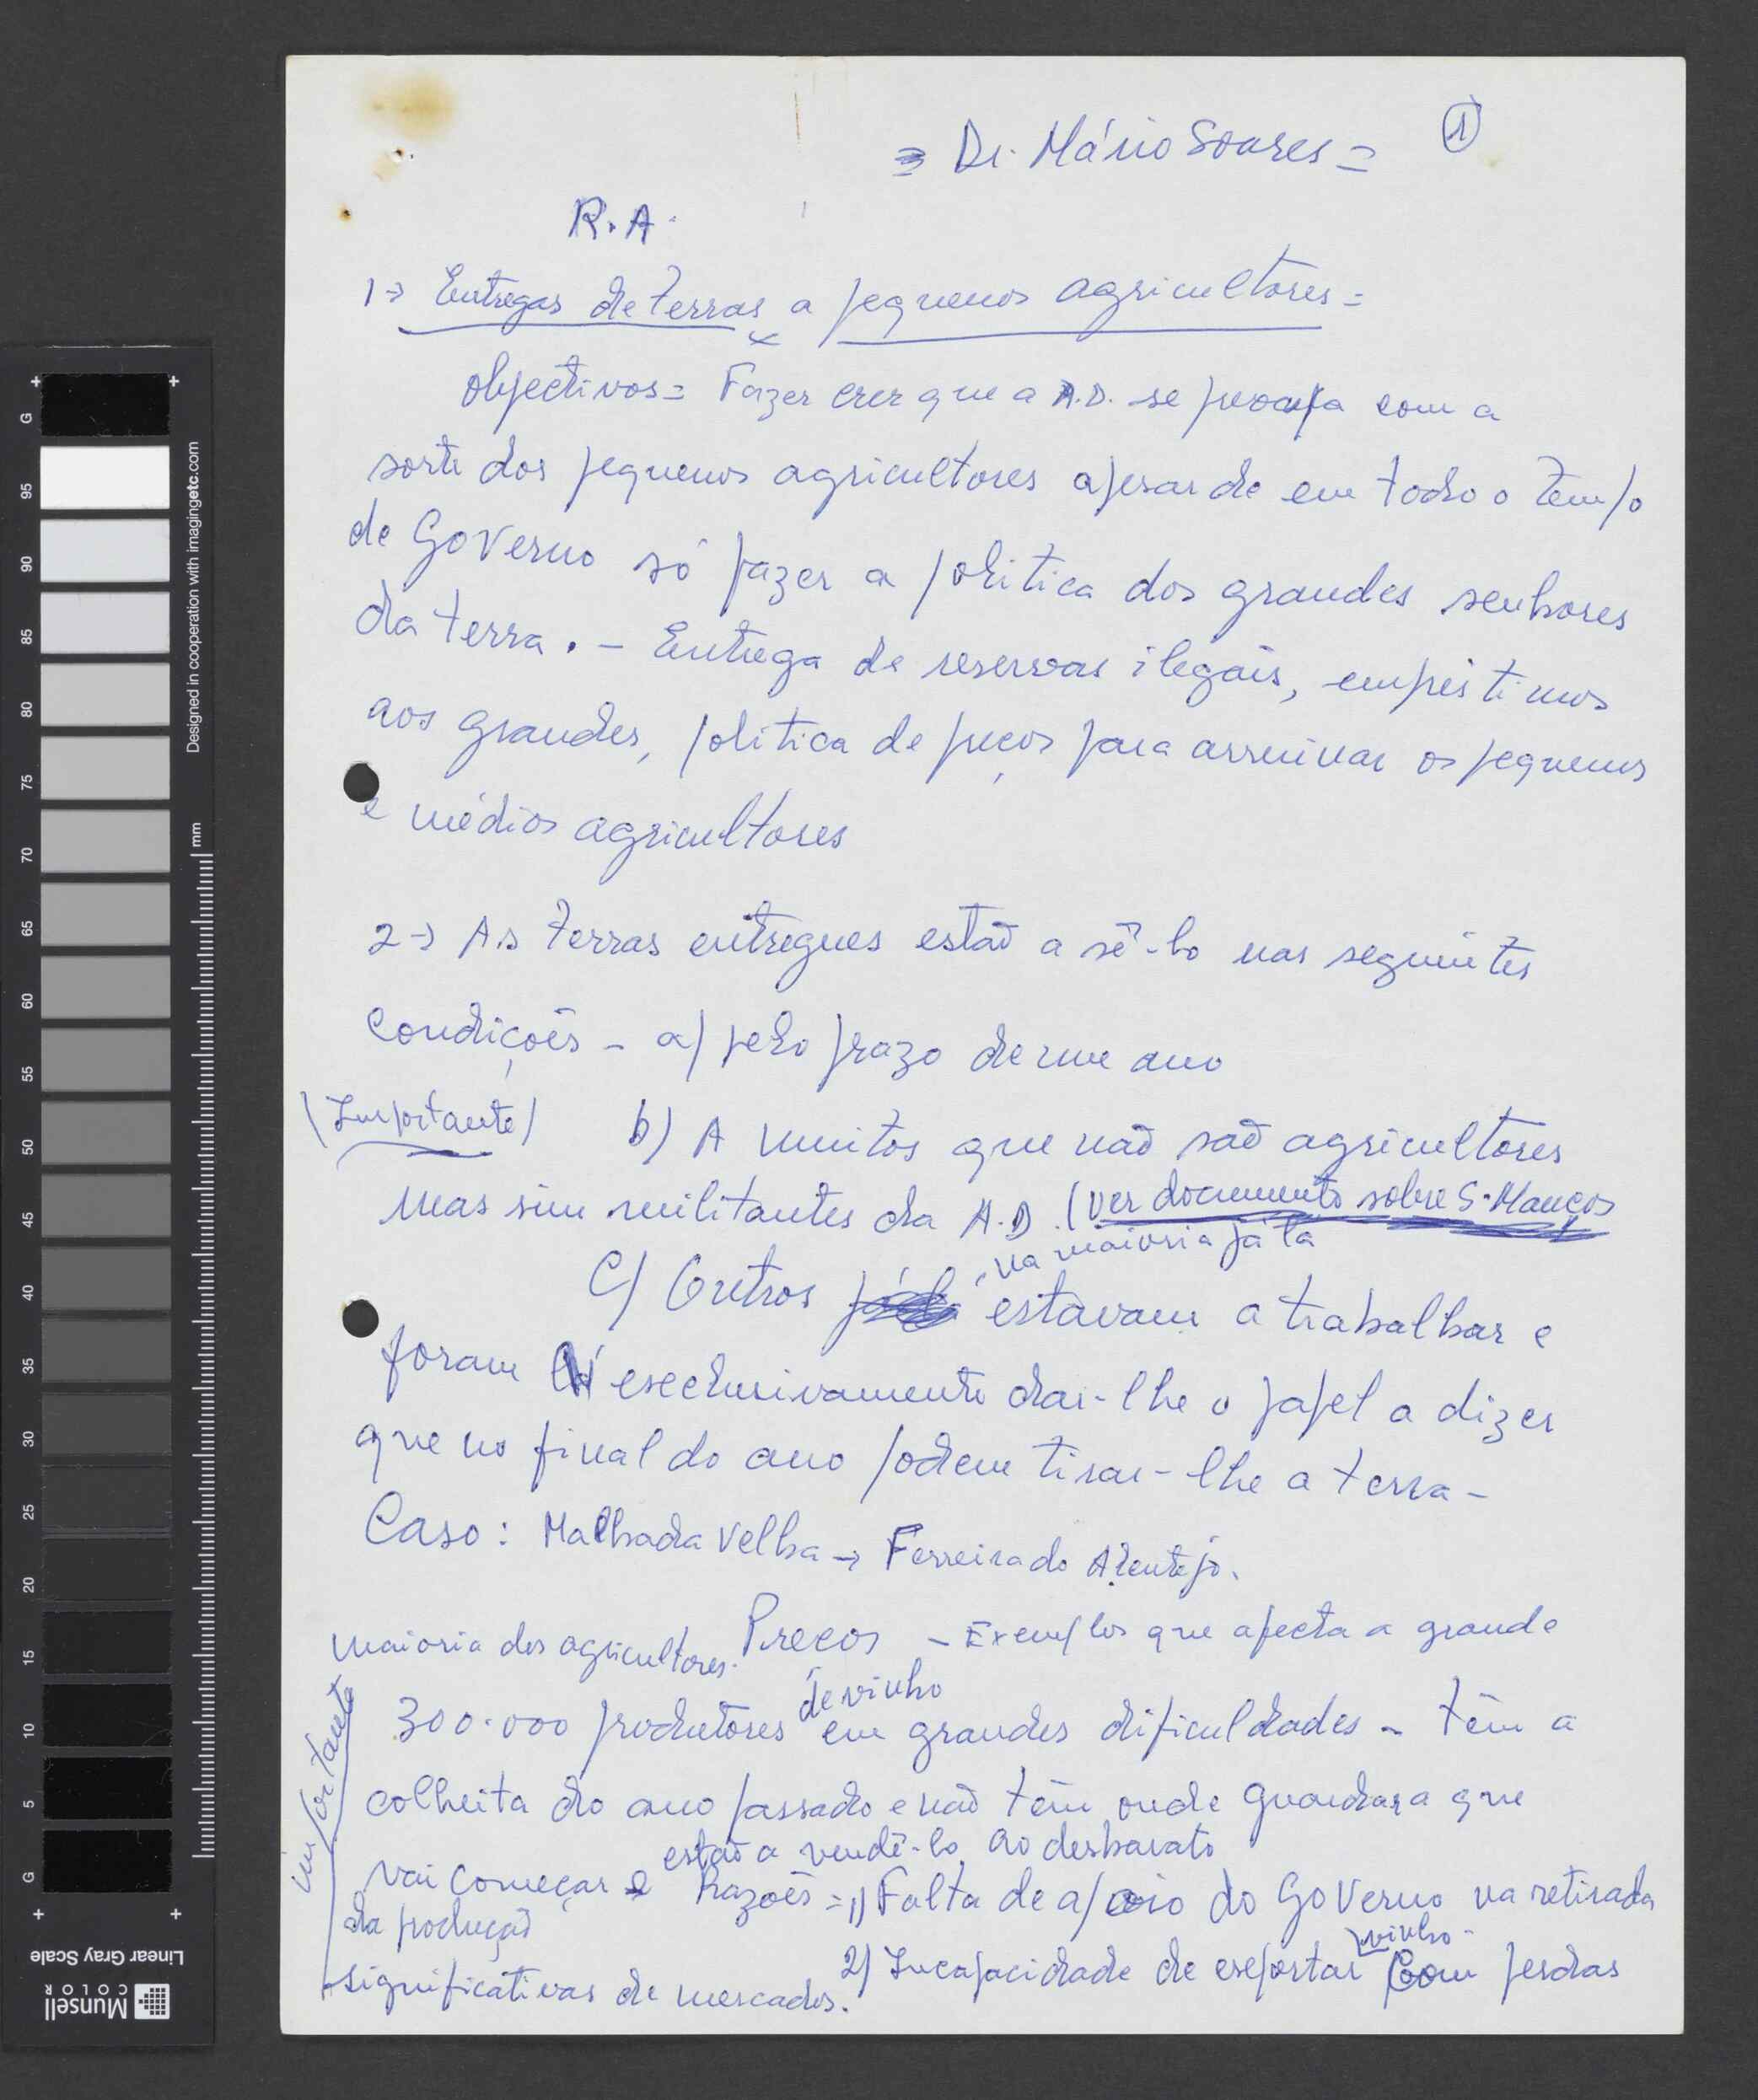 = Dr. Mário Soares =
1
R.A.
1→ Entregas de terras a pequenos agricultores =
objectivos = Fazer crer que a A.D. se preocupa com a
sorte dos pequenos agricultores apesar de em todo o tempo
de Governo só fazer a politica dos grandes senhores
da terra. - Entrega de reservas ilegais, empréstimos
aos grandes, politica de preços para arruinar os pequenos
e médios agricultores
2→ As terras entregues estão a sê-lo nas seguintes
condições - a) pelo prazo de um ano
(Importante) b) A muitos que não são agricultores
mas sim militantes da A.D. (ver documento sobre S. Manços
na maioria já lá
C) Outros estavam a trabalhar e
foram lá esclusivamente dar-lhe o papel a dizer
que no final do ano podem tirar-lhe a terra -
Caso: Malhada Velha → Ferreira do Alentejo.
Precos - Exemplos que afecta a grande
maioria dos agricultores.
de vinho
300.000 produtores em grandes dificuldades - têm a
colheita do ano passado e não têm onde guardar a que
estão a vendê-lo ao desbarato
vai começar e Razões = 1) Falta de apoio do Governo na retirada
da produção
vinho -
2) Incapacidade de esportar com perdas
significativas de mercados.
importante
Designed in cooperation with imagingetc.com
mm
G
95
90
85
80
75
70
65
60
55
50
45
40
35
30
25
20
15
10
5
G
Linear Gray Scale
Munsell
COLOR